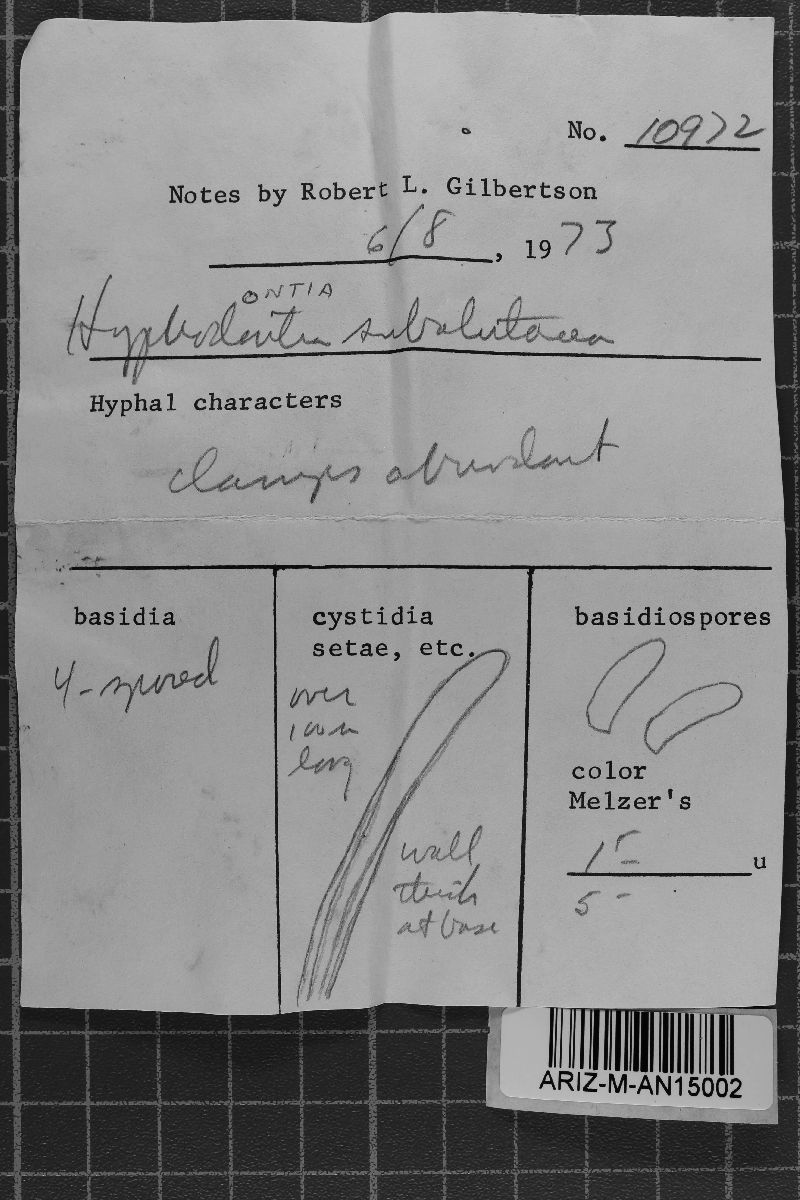 No. 10972
Notes by Robert L. Gilbertson
6/8, 1973
ONTIA
Hyphodontia subalutacea
Hyphal characters
clamps abundant
basidia
4-spored
cystidia
setae, etc.
over
100 u
long
wall
thick
at base
basidiospores
color
Melzer's
u
5 -
ARIZ-M-AN15002